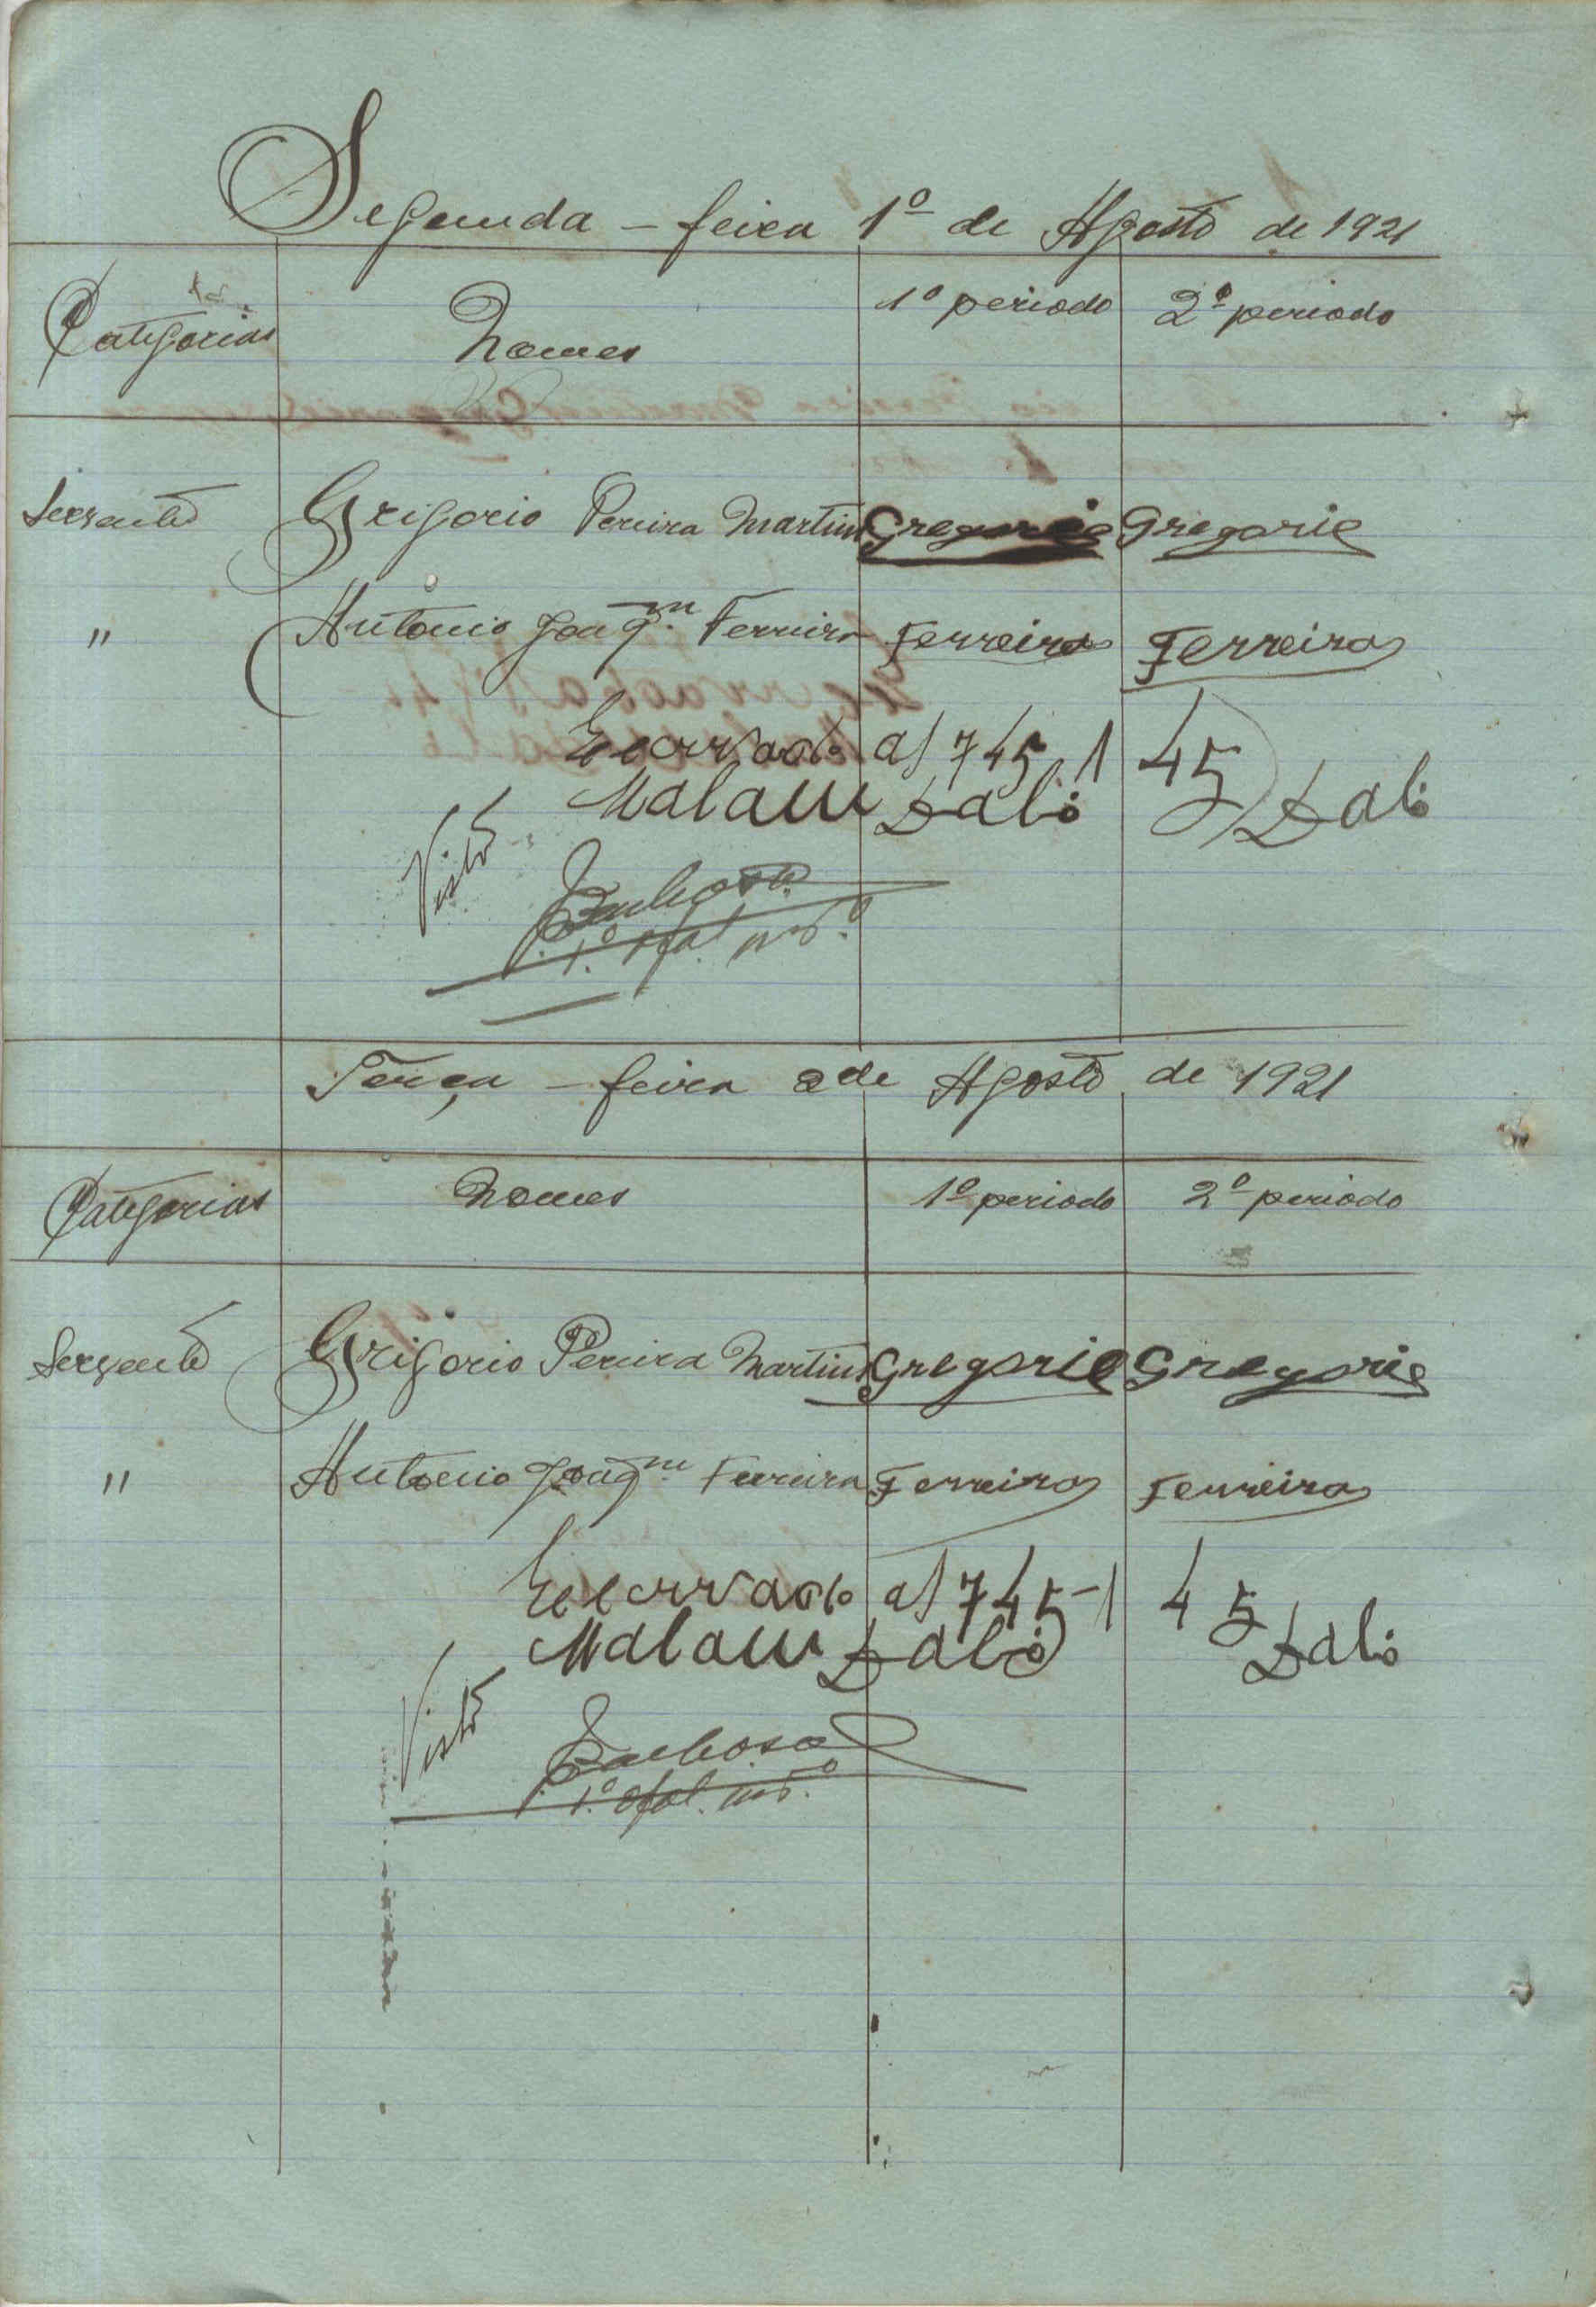 Segunda - feira 1º de Agosto de 1921
Categorias Nomes 1º periodo 2º periodo
Servente Grigorio Pereira Martins Gregorio Gregorio
" Antonio Joaqm. Ferreira Ferreira Ferreira
as 745 1 45
Malam Dabó Dabó
Visto
Barbosa
1º ofal. intº
Terça - feira 2 de Agosto de 1921
Categorias Nomes 1º periodo 2º periodo
Servente Grigorio Pereira Martins Gregorio Gregorio
" Antonio Joaqm. Ferreira Ferreira Ferreira
as 745 - 1 45
Malam Dabó Dabó
Visto
Barbosa
1º ofal. intº